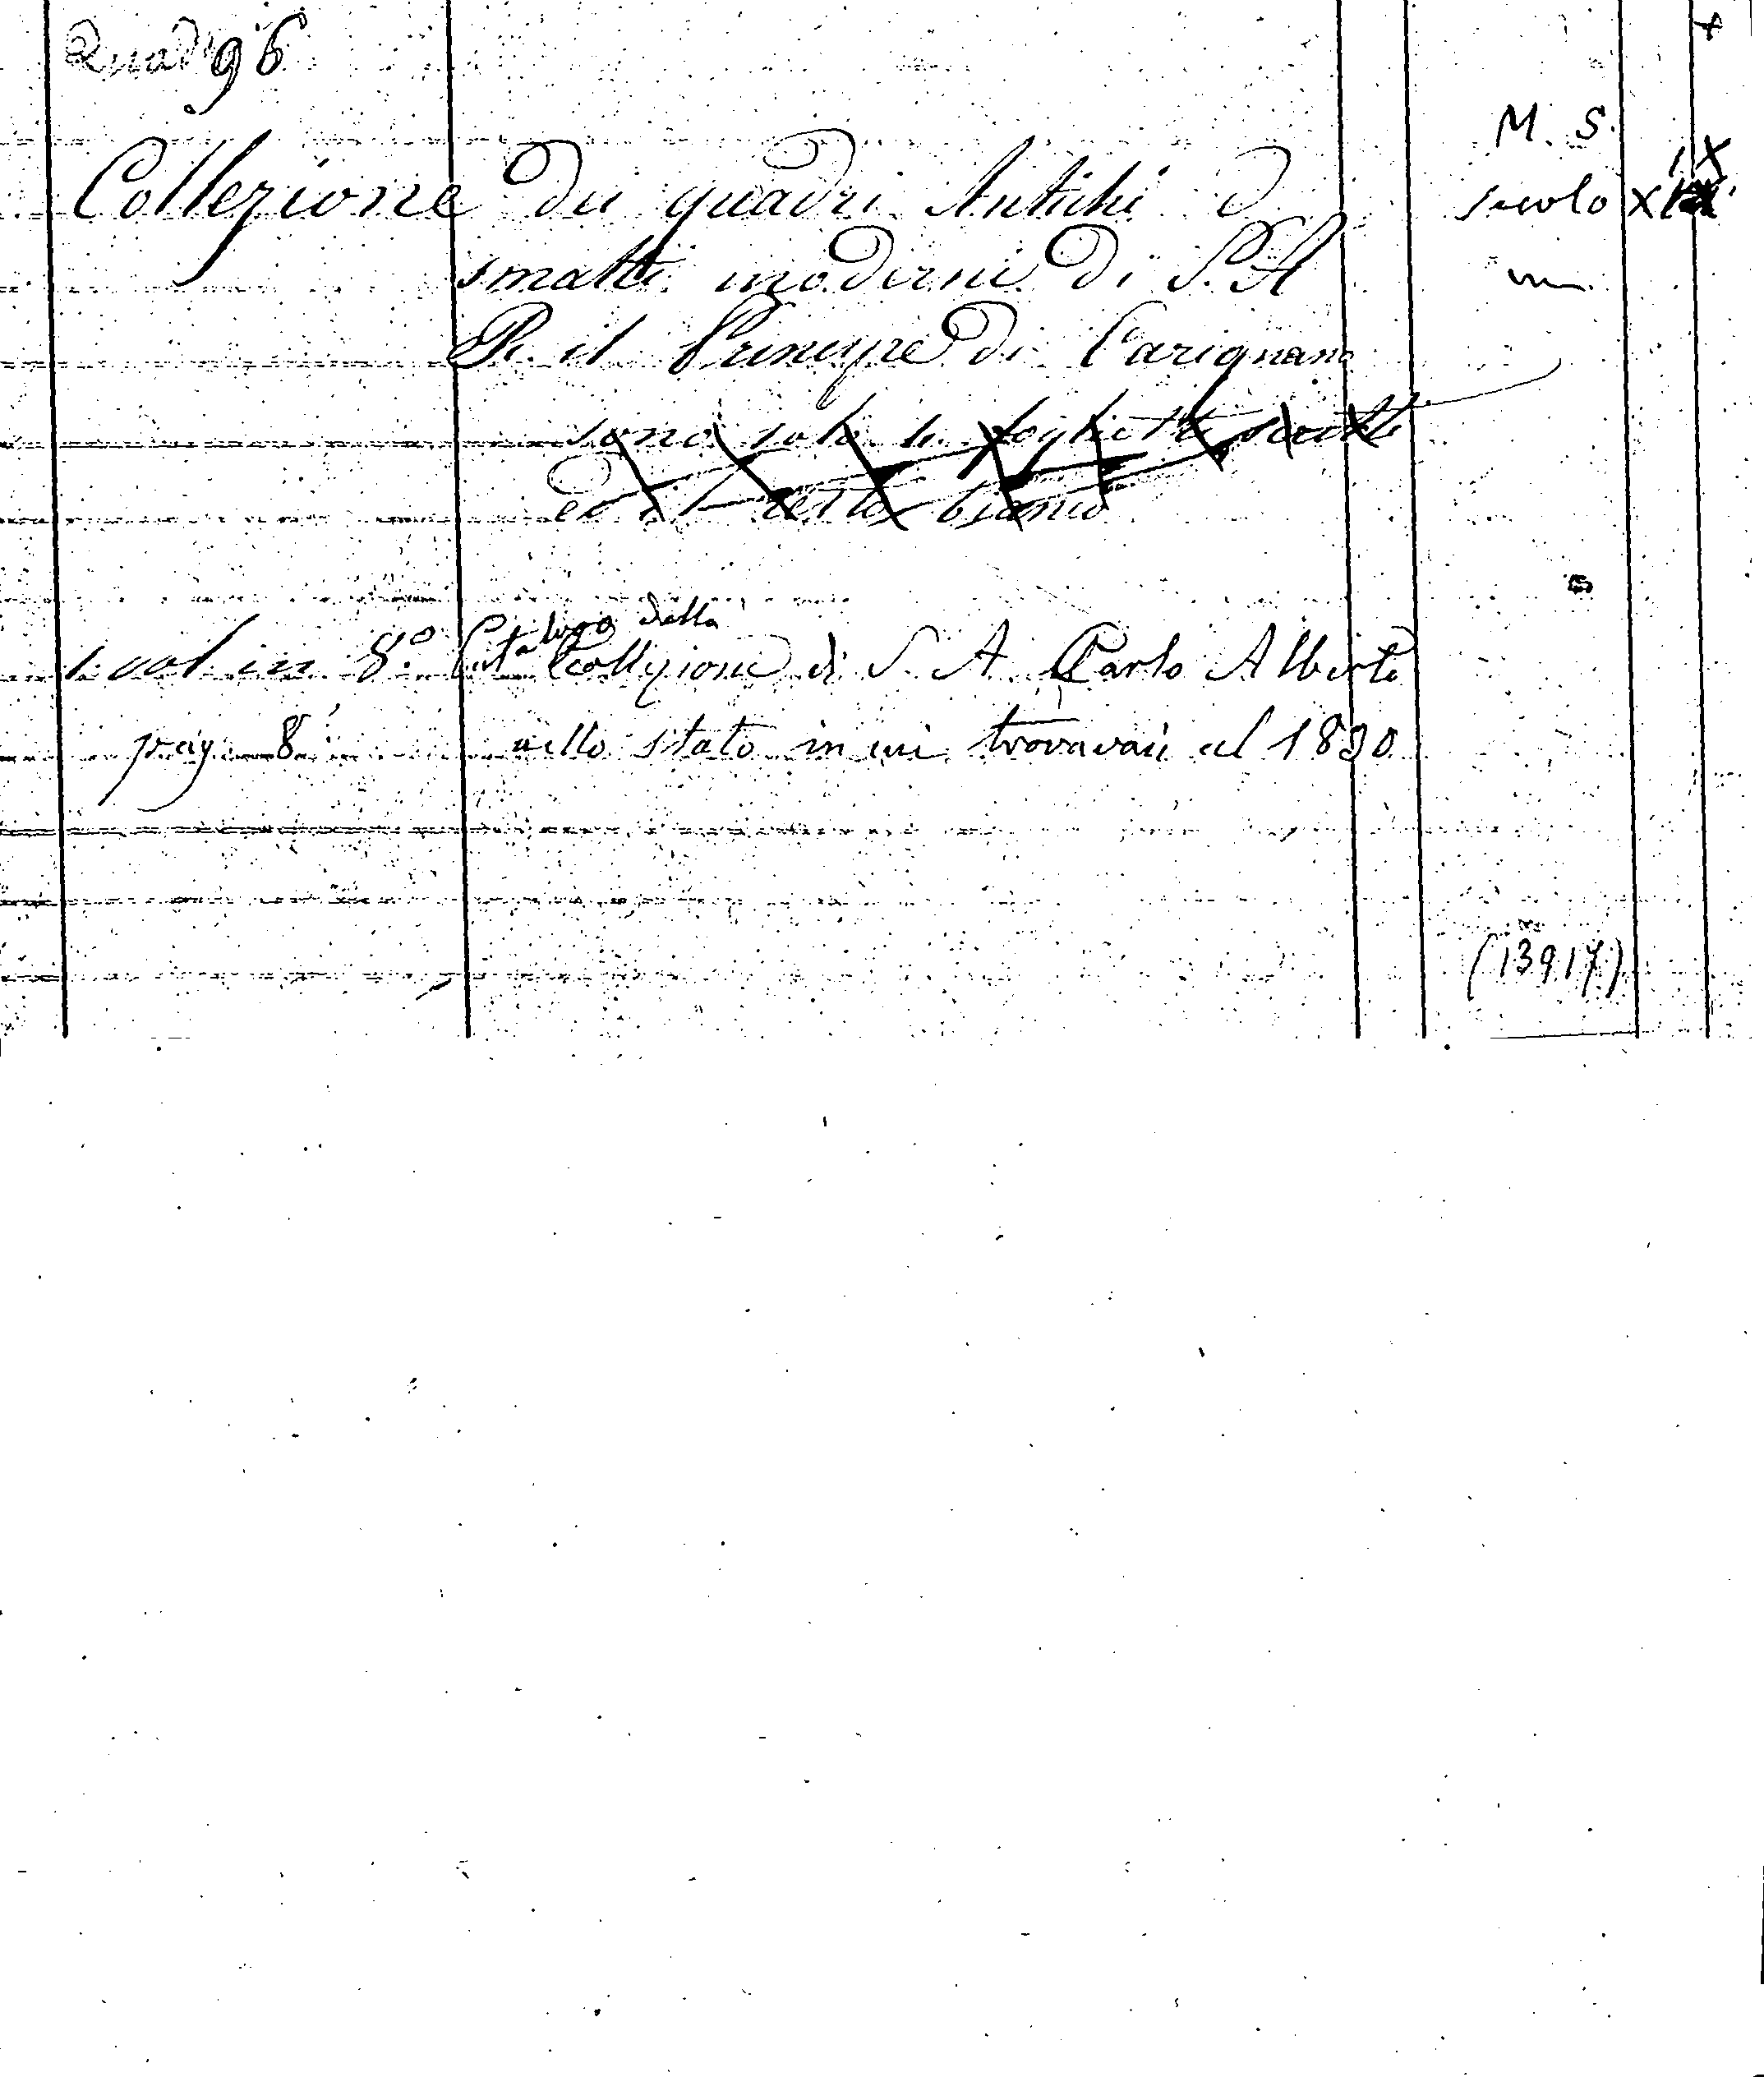 Quad 96
M. S.
Collezione dei quadri Antichi e
secolo XIX
smalti moderni di S. A
R. il Principe di Carignano
sono solo 4 foglietti scritti
ed il resto bianco
Catalogo della
1 vol in 8.° Collezione di S. A. Carlo Alberto
pag. 8 nello stato in cui trovavasi al 1830
(13917)